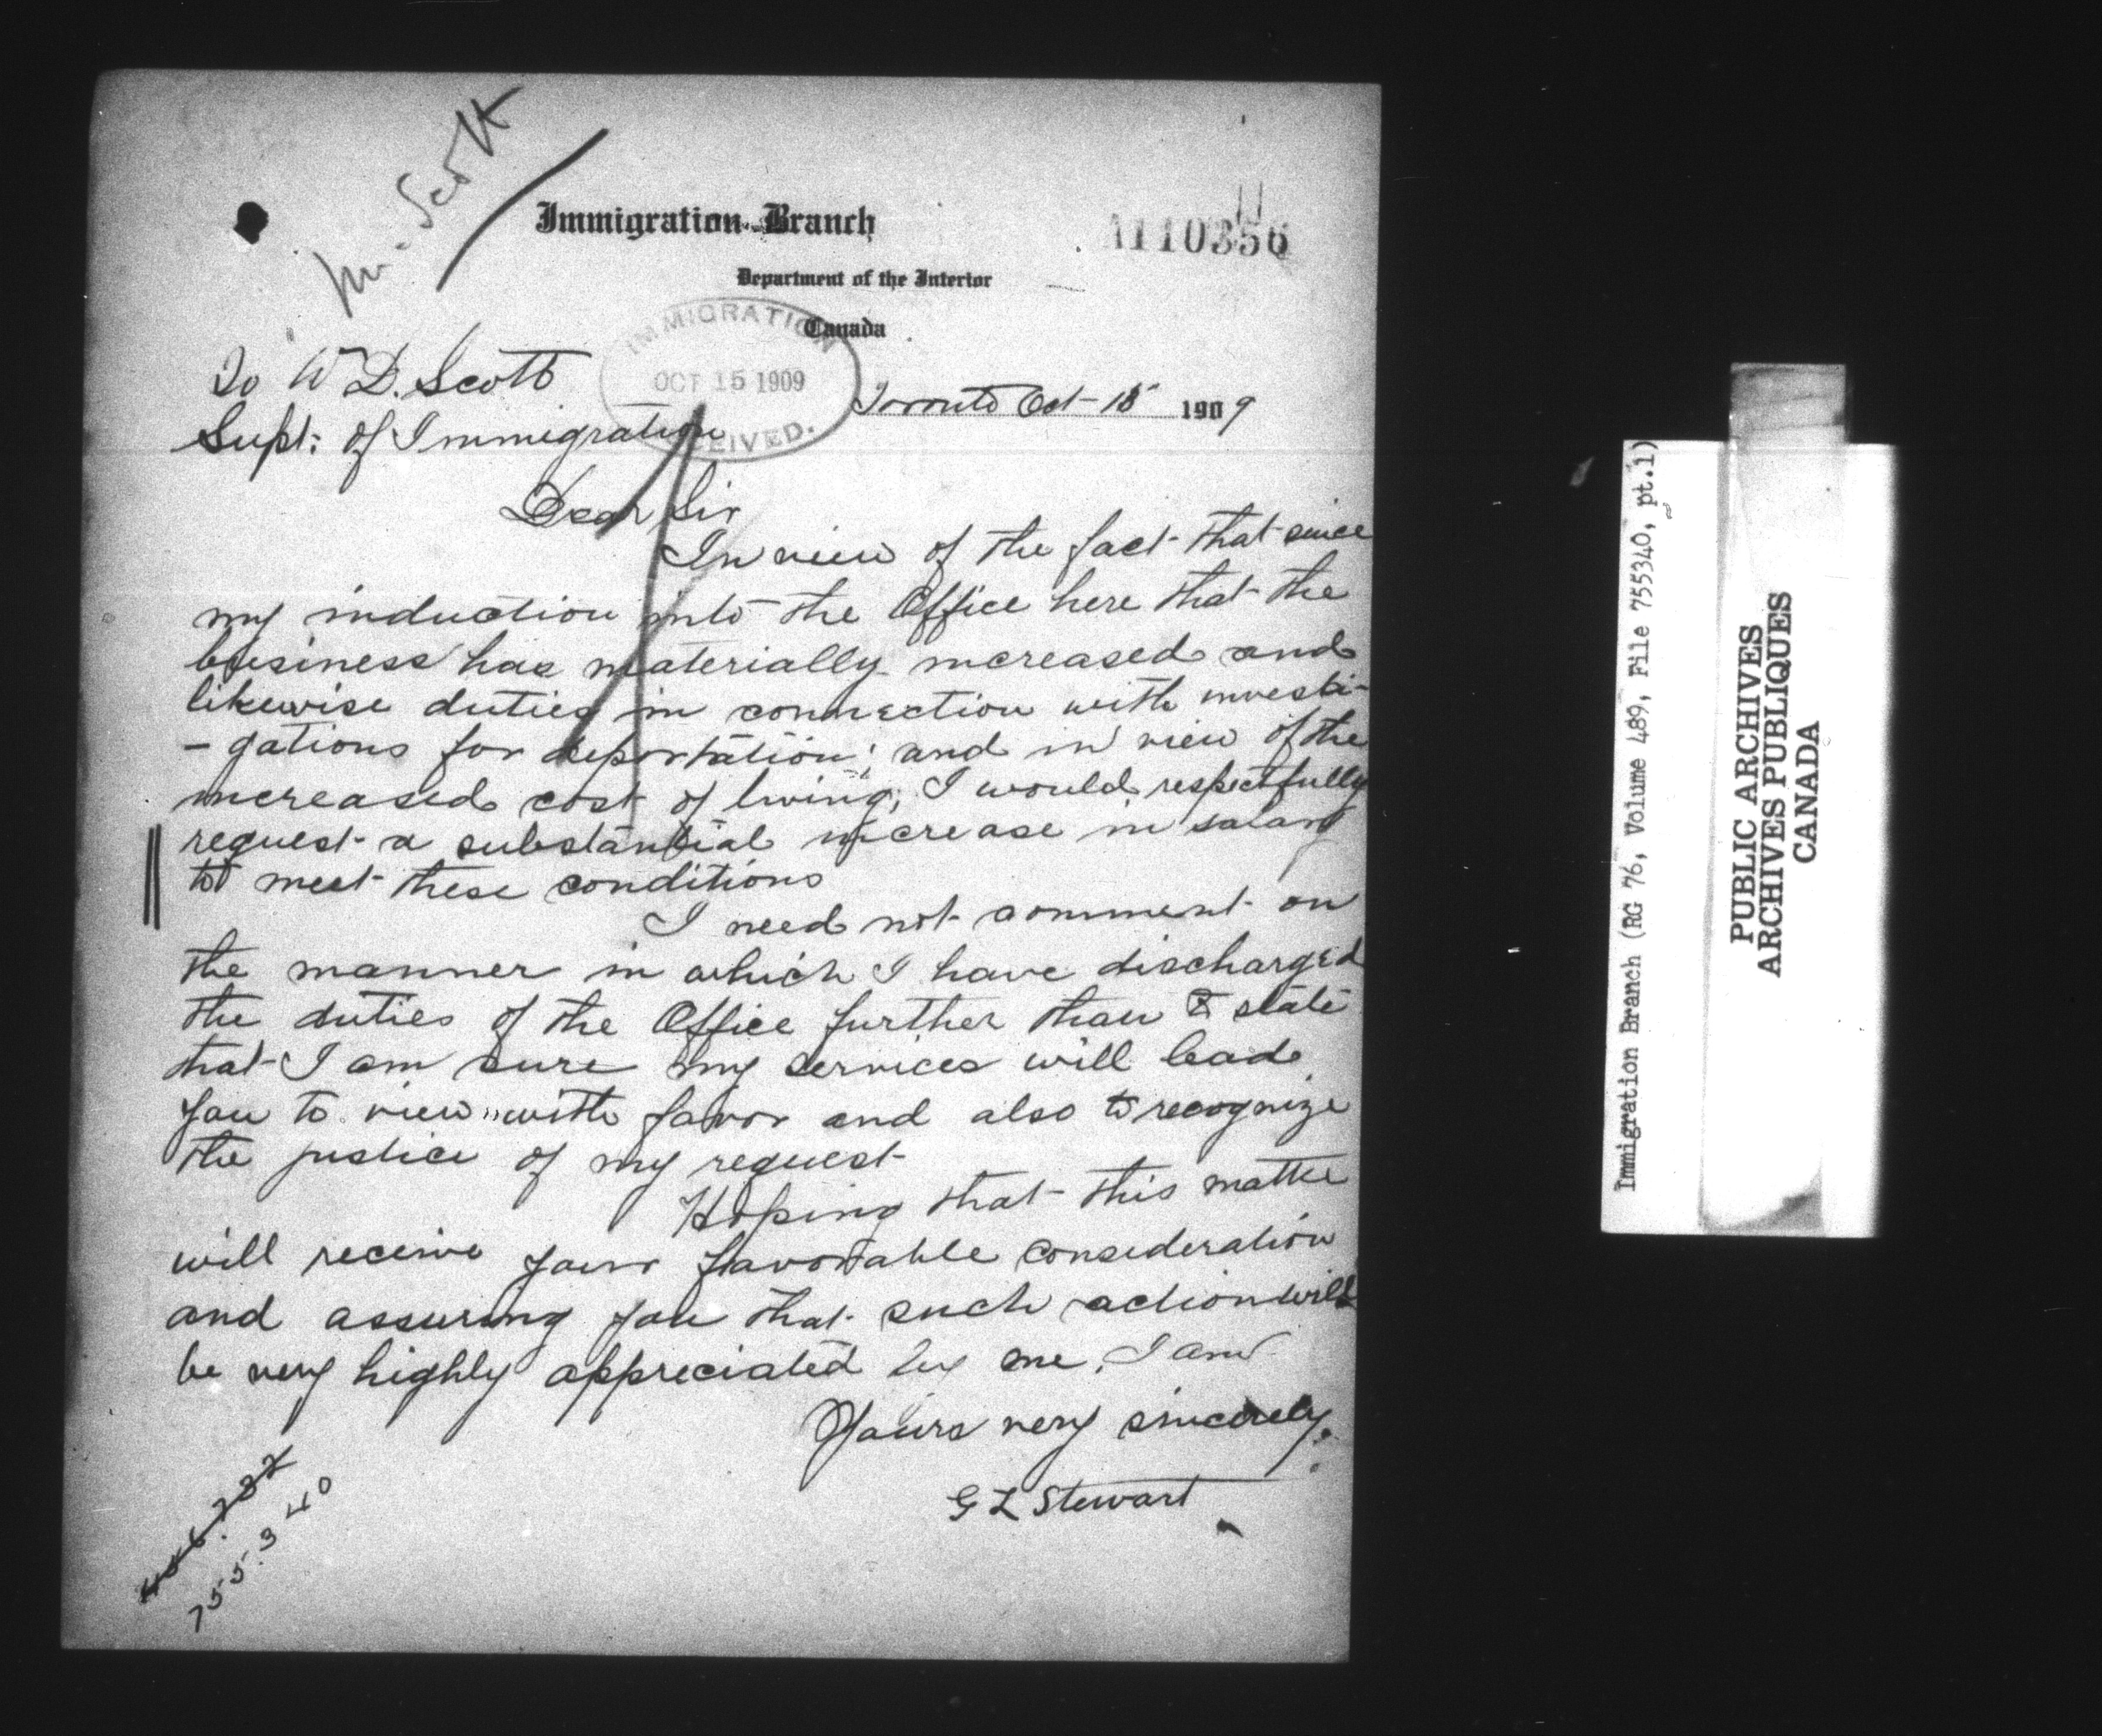 Mr. Scott
Immigration Branch
A110356
Department of the Interior
Canada
IMMIGRATION
OCT 15 1909
RECEIVED.
To W D. Scott
Toronto Oct 15 1909
Supt: of Immigration
Dear Sir
In view of the fact that since
my induction into the Office here that the
business has materially increased and
likewise duties in connection with investi-
-gations for deportation; and in view of the
increased cost of living, I would respectfully
request a substantial increase in salary
to meet these conditions
I need not comment on
the manner in which I have discharged
the duties of the Office further than to state
that I am sure my services will lead
you to view with favor and also to recognize
the justice of my request
Hoping that this matter
will receive your favorable consideration
and assuring you that such action will
be very highly appreciated by me, I am
Yours very sincerely,
G L Stewart
755340
Immigration Branch (RG 76, Volume 489, File 755340, pt.1)
PUBLIC ARCHIVES
ARCHIVES PUBLIQUES
CANADA